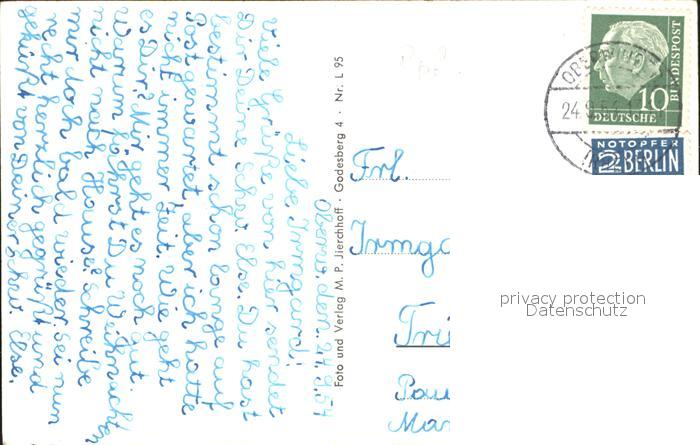 Oberw. den. 24.9.54
Liebe Irmgard!
Viele Grüße von hier sendet
Dir Deine Schw. Else. Du hast
bestimmt schon lange auf
Post gewartet aber ich hatte
nicht immer Zeit. Wie geht
es Dir? Mir geht es noch gut.
Warum fährst Du Weihnachten
nicht nach Hause. Schreibe
mir doch bald wieder. Sei nun
recht herzlich gegrüßt und
geküßt von Deiner Schw. Else.
Foto und Verlag M. P. Jierchhoff · Godesberg 4 · Nr. L 95
Frl.
Irmga
Tri
Pau
Mar
DEUTSCHE BUNDESPOST
10
24.9.54
NOTOPFER
2 BERLIN
privacy protection
Datenschutz